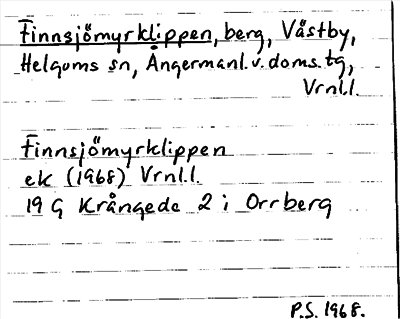 Finnsjömyrklippen, berg, Västby,
Helgums sn, Ångermanl.v.doms.tg,
Vrnl.l.
Finnsjömyrklippen
ek (1968) Vrnl.l.
19 G Krångede 2 i Orrberg
P.S. 1968.